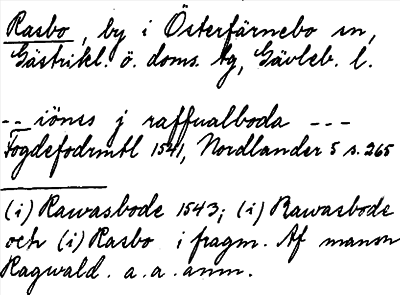 Rasbo, by i Österfärnebo sn,
Gästrikl. ö. doms. tg, Gävleb. l.
-- iönss j raffualboda ---
Fogdefodrmtl 1541, Nordlander 5 s. 265
(i) Rawasbode 1543; (i) Rawasbode
och (i) Rasbo i fragm. Af mansn
Ragwald. a. a. anm.